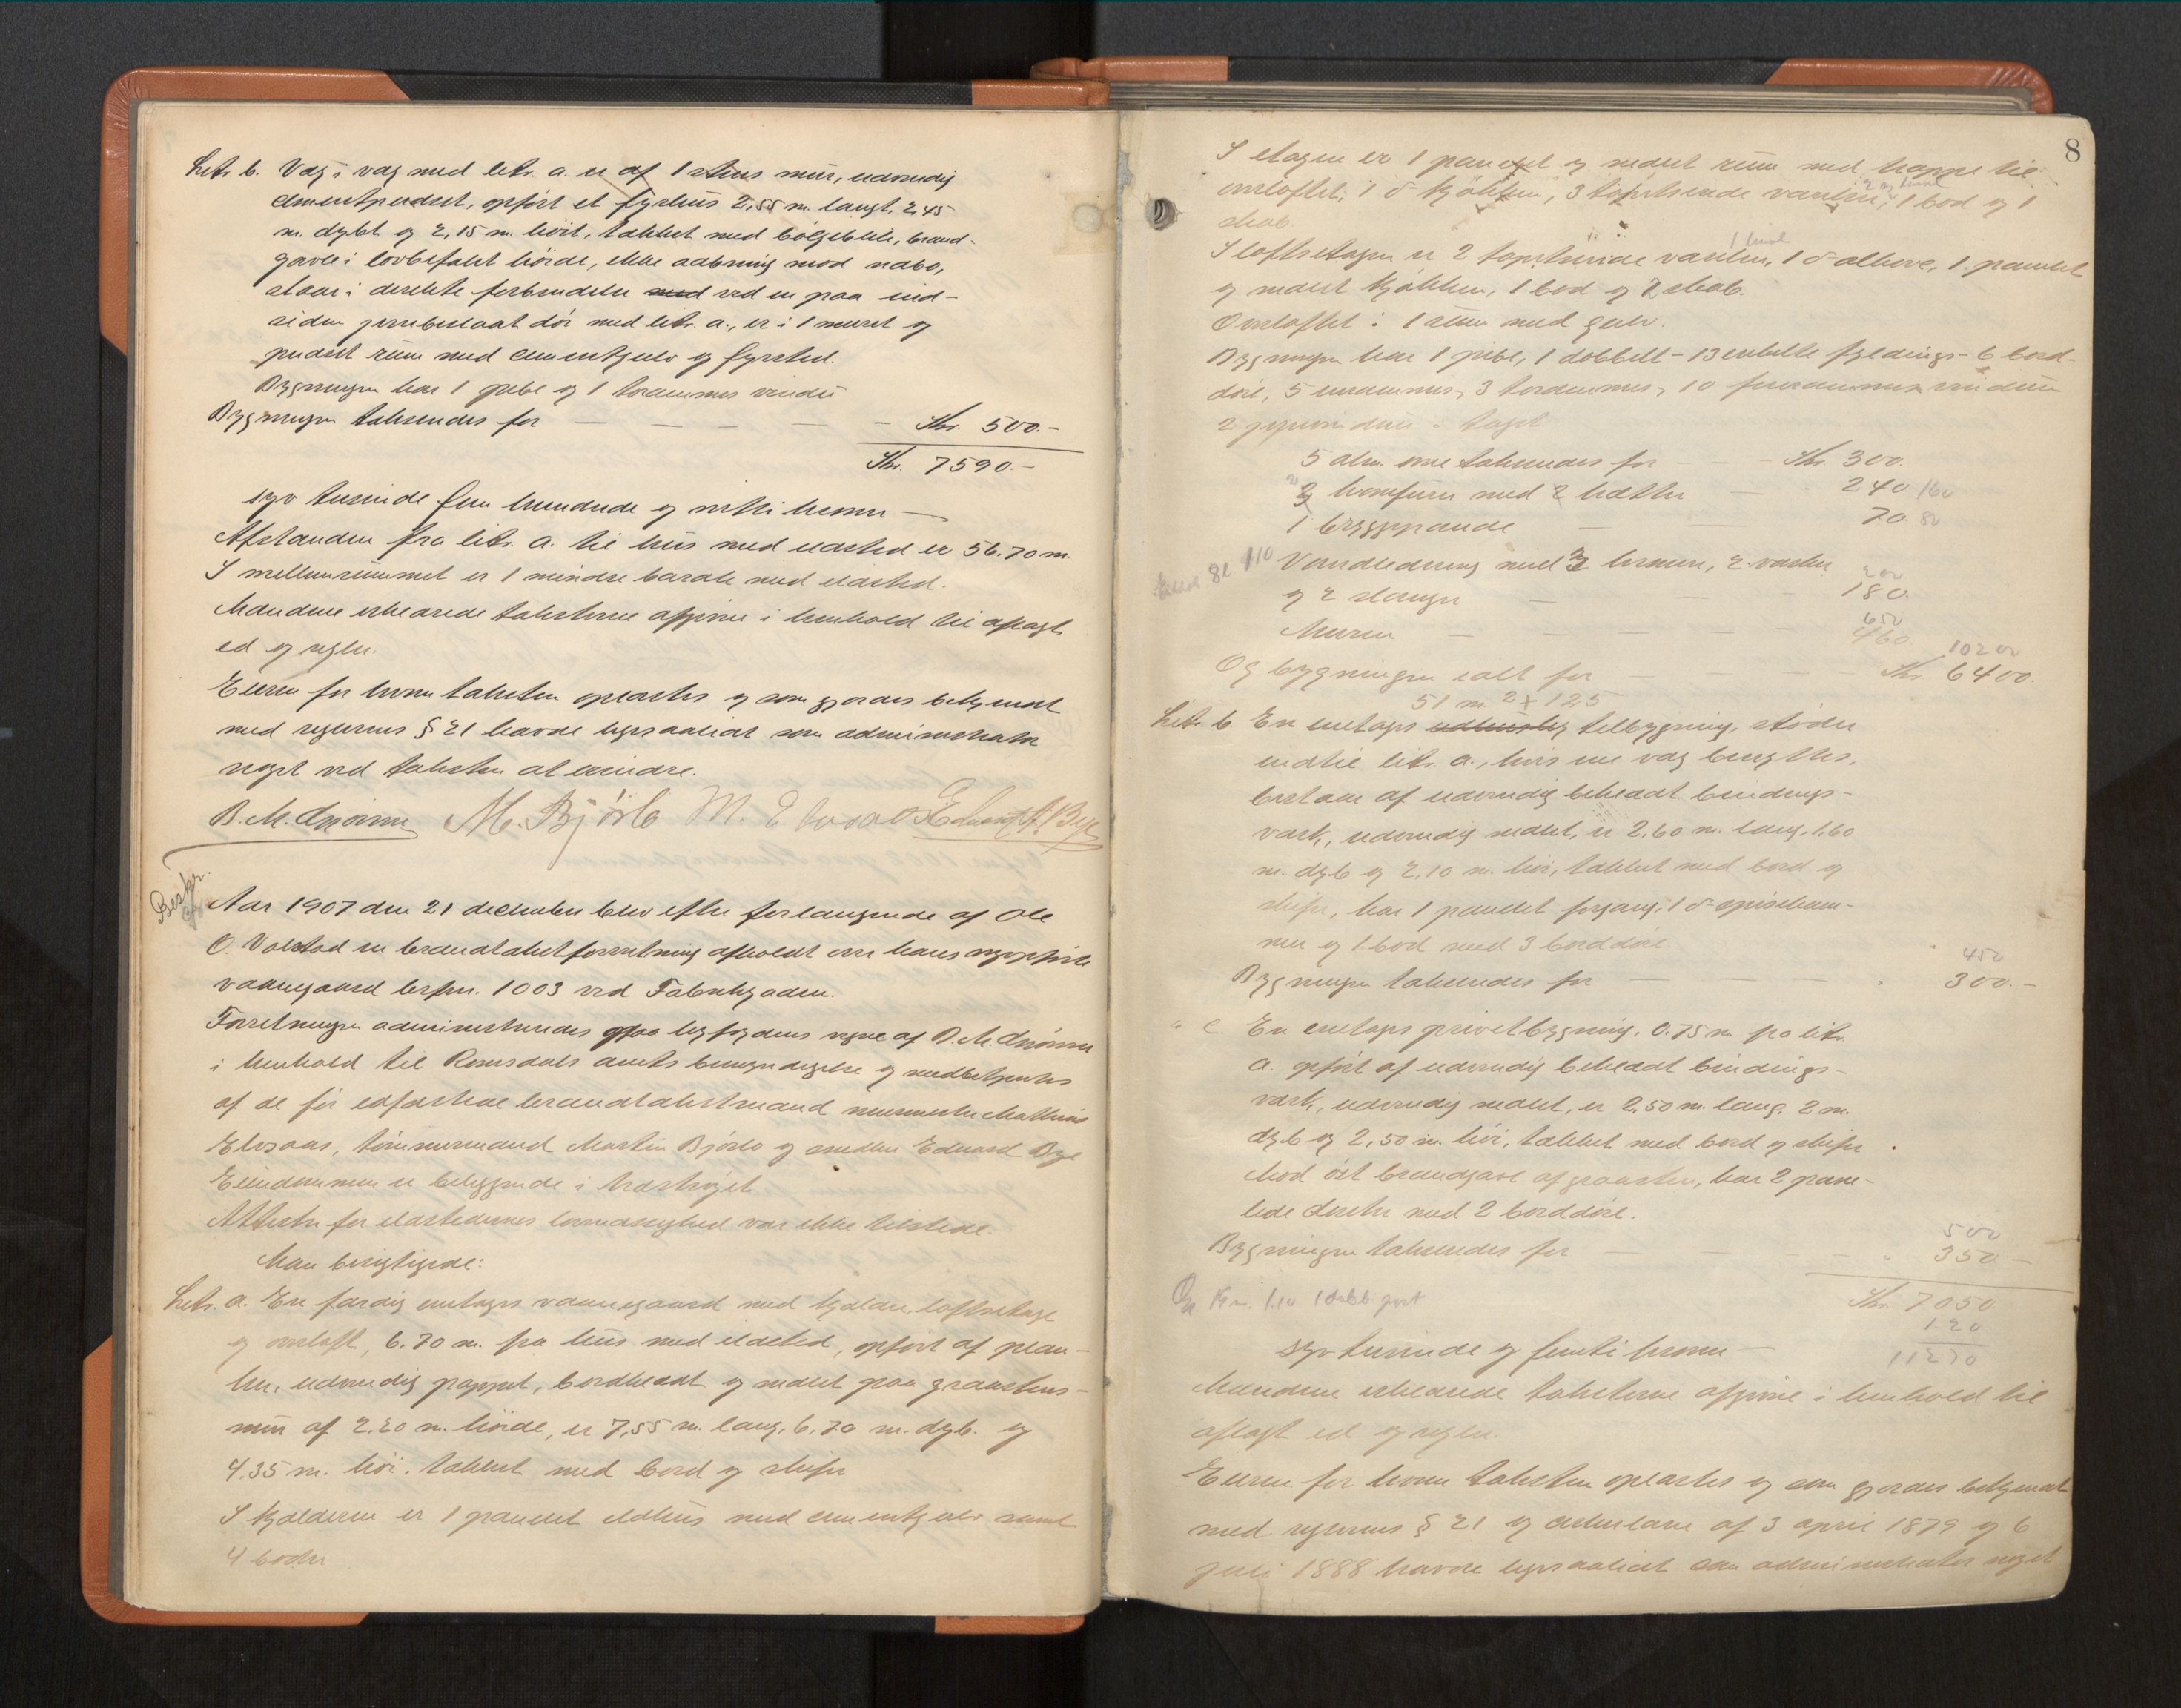 Litr. b. Væg i væg med litr. a. er af 1 stens mur, udvendig
cementpudset, opført et fyrhus 2,55 m. langt, 2,45
m. dybt og 2,15 m. høit, tækket med bølgeblik, brand-
gavle i lovbefalet høide, ikke aabning mod nabo,
staar i direkte forbindelse med ved en paa ind-
siden jernbeslaat dør med litr. a., er i 1 muret og
pudset rum med cementgulv og fyrsted.
Bygningen har 1 pibe og 1 torammes vindu
Bygningen takseredes for — — — — — Kr. 500.-
Kr. 7590.-
syv tusinde fem hundrede og nitti kroner —
Afstanden fra litr. a. til hus med ildsted er 56.70 m.
I mellemrummet er 1 mindre barak med ildsted.
Mændene erklærede taksterne afgivne i henhold til aflagt
ed og regler.
Eieren for hvem taksten oplæstes og som gjordes bekjendt
med reglernes § 21 havde ligesaalidt som administrator
noget ved taksten at erindre.
B. M. M. Bjørlo M. Elvsaas Edvard Bye
Beskr.
Aar 1907 den 21 december blev efter forlangende af Ole
O. Volstad en brandtakstforretning afholdt over hans nyopførte
vaaningsgaard brfnr. 1003 ved Fabrikgaden.
Forretningen administreredes paa lensfogdens vegne af B. M.
i henhold til Romsdals amts bemyndigelse og medbetjentes
af de før edfæstede brandtakstmænd murmester Mathias
Elvsaas, tømmermand Martin Bjørlo og snedker Edvard Bye
Eiendommen er beliggende i strøget
Attester for ildstedernes lovmæssighed var ikke tilstede.
Man besigtigede:
Litr. a. En færdig enetages vaaningsgaard med kjælder, loftsetage
og overloft, 6.70 m. fra hus med ildsted, opført af plan-
ker, udvendig pappet, bordklædt og malet paa graastens-
mur af 2.20 m. høide, er 7,55 m. lang, 6,70 m. dyb og
4.35 m. høi, tækket med bord og skifer
I kjælderen er 1 pandet ildhus med cementgulv samt
4 boder
8
I etagen er 1 panelet og malet rum med trappe til
overloftet, 1 d° kjøkken, 3 tapetserede værelser, 1 bod og 1
skab
I loftsetagen er 2 tapetserede værelser, 1 d° alkove, 1 panelet
og malet kjøkken, 1 bod og 2 skab.
Overloftet i 1 rum med gulv.
Bygningen har 1 pibe, 1 dobbelt- 13 enkelte fyldings- 6 bord-
døre, 5 enrammes, 3 torammes, 10 firerammes vinduer
2 jernvinduer i taget
5 alm. ovne takseredes for — Kr. 300.
2 komfurer med 2 kjedler — 240 160
1 bryggepande — 70. 80
110 Vandledning med 3 kraner, 2 vaske 200
og 2 slanger — — — 180.
650
Muren — — — — — 460 10200
Og bygningen ialt for — — — Kr. 6400.
51 m 2 + 125
Litr. b En enetages udhusbyg tilbygning, støder
indtil litr. a., hvis ene væg benyttes,
bestaar af udvendig beklædt bindings-
værk, udvendig malet, er 2.60 m. lang, 1,60
m. dyb og 2.10 m. høi, tækket med bord og
skifer, har 1 pandet forgang, 1 d° spisekam-
mer og 1 bod med 3 borddøre
450
Bygningen takseredes for — — — 300.-
" c. En enetages privetbygning, 0.75 m fra litr.
a. opført af udvendig beklædt bindings-
værk, udvendig malet, er 2,50 m. lang, 2 m.
dyb og 2,50 m. høi, tækket med bord og skifer
Mod øst brandgavl af graasten, har 2 pane-
lede closetter med 2 borddøre.
500
Bygningen takseredes for — — 350 —
Kr. 7050
120
11270
syv tusinde og femti kroner —
Mændene erklærede taksterne afgivne i henhold til
aflagt ed og regler.
Eieren for hvem taksten oplæstes og som gjordes bekjendt
med reglernes § 21 og cirkulære af 3 april 1879 og 6
juli 1888 havde ligesaalidt som administrator noget